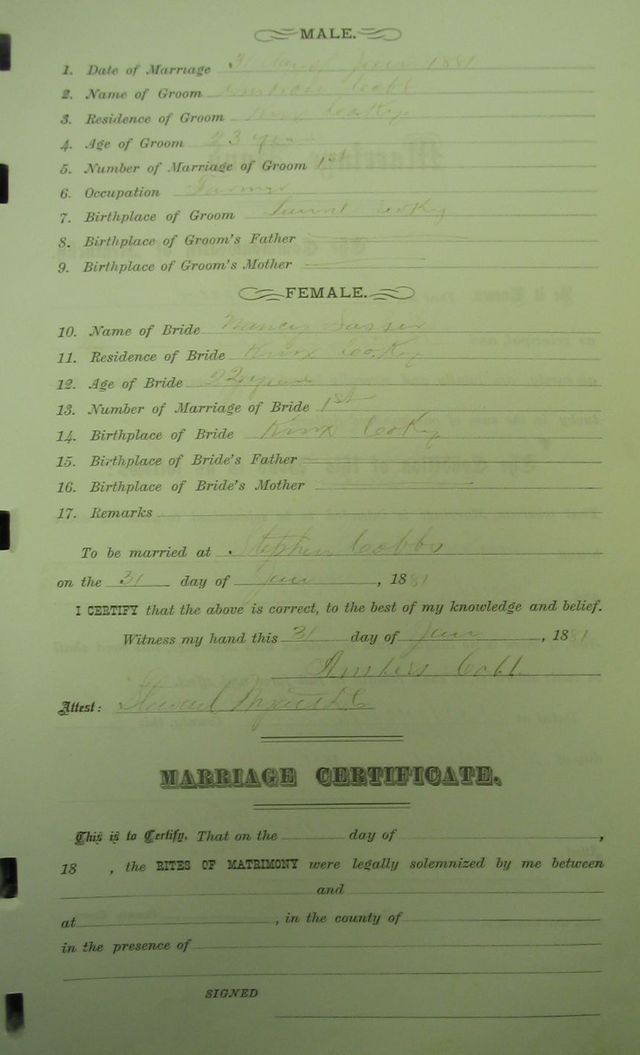 MALE.
1. Date of Marriage 31 day of Jan 1881
2. Name of Groom Cobb
3. Residence of Groom Knox Co Ky
4. Age of Groom 23 years
5. Number of Marriage of Groom 1st
6. Occupation Farmer
7. Birthplace of Groom Laurel Co Ky
8. Birthplace of Groom's Father
9. Birthplace of Groom's Mother
FEMALE.
10. Name of Bride Nancy Sasser
11. Residence of Bride Knox Co Ky
12. Age of Bride 22 years
13. Number of Marriage of Bride 1st
14. Birthplace of Bride Knox Co Ky
15. Birthplace of Bride's Father
16. Birthplace of Bride's Mother
17. Remarks
To be married at Stephen Cobbs
on the 31 day of Jan, 1881
I CERTIFY that the above is correct, to the best of my knowledge and belief.
Witness my hand this 31 day of Jan, 1881.
Cobb
Attest:
MARRIAGE CERTIFICATE.
This is to Certify, That on the day of ,
18 , the RITES OF MATRIMONY were legally solemnized by me between
and
at , in the county of
in the presence of
SIGNED